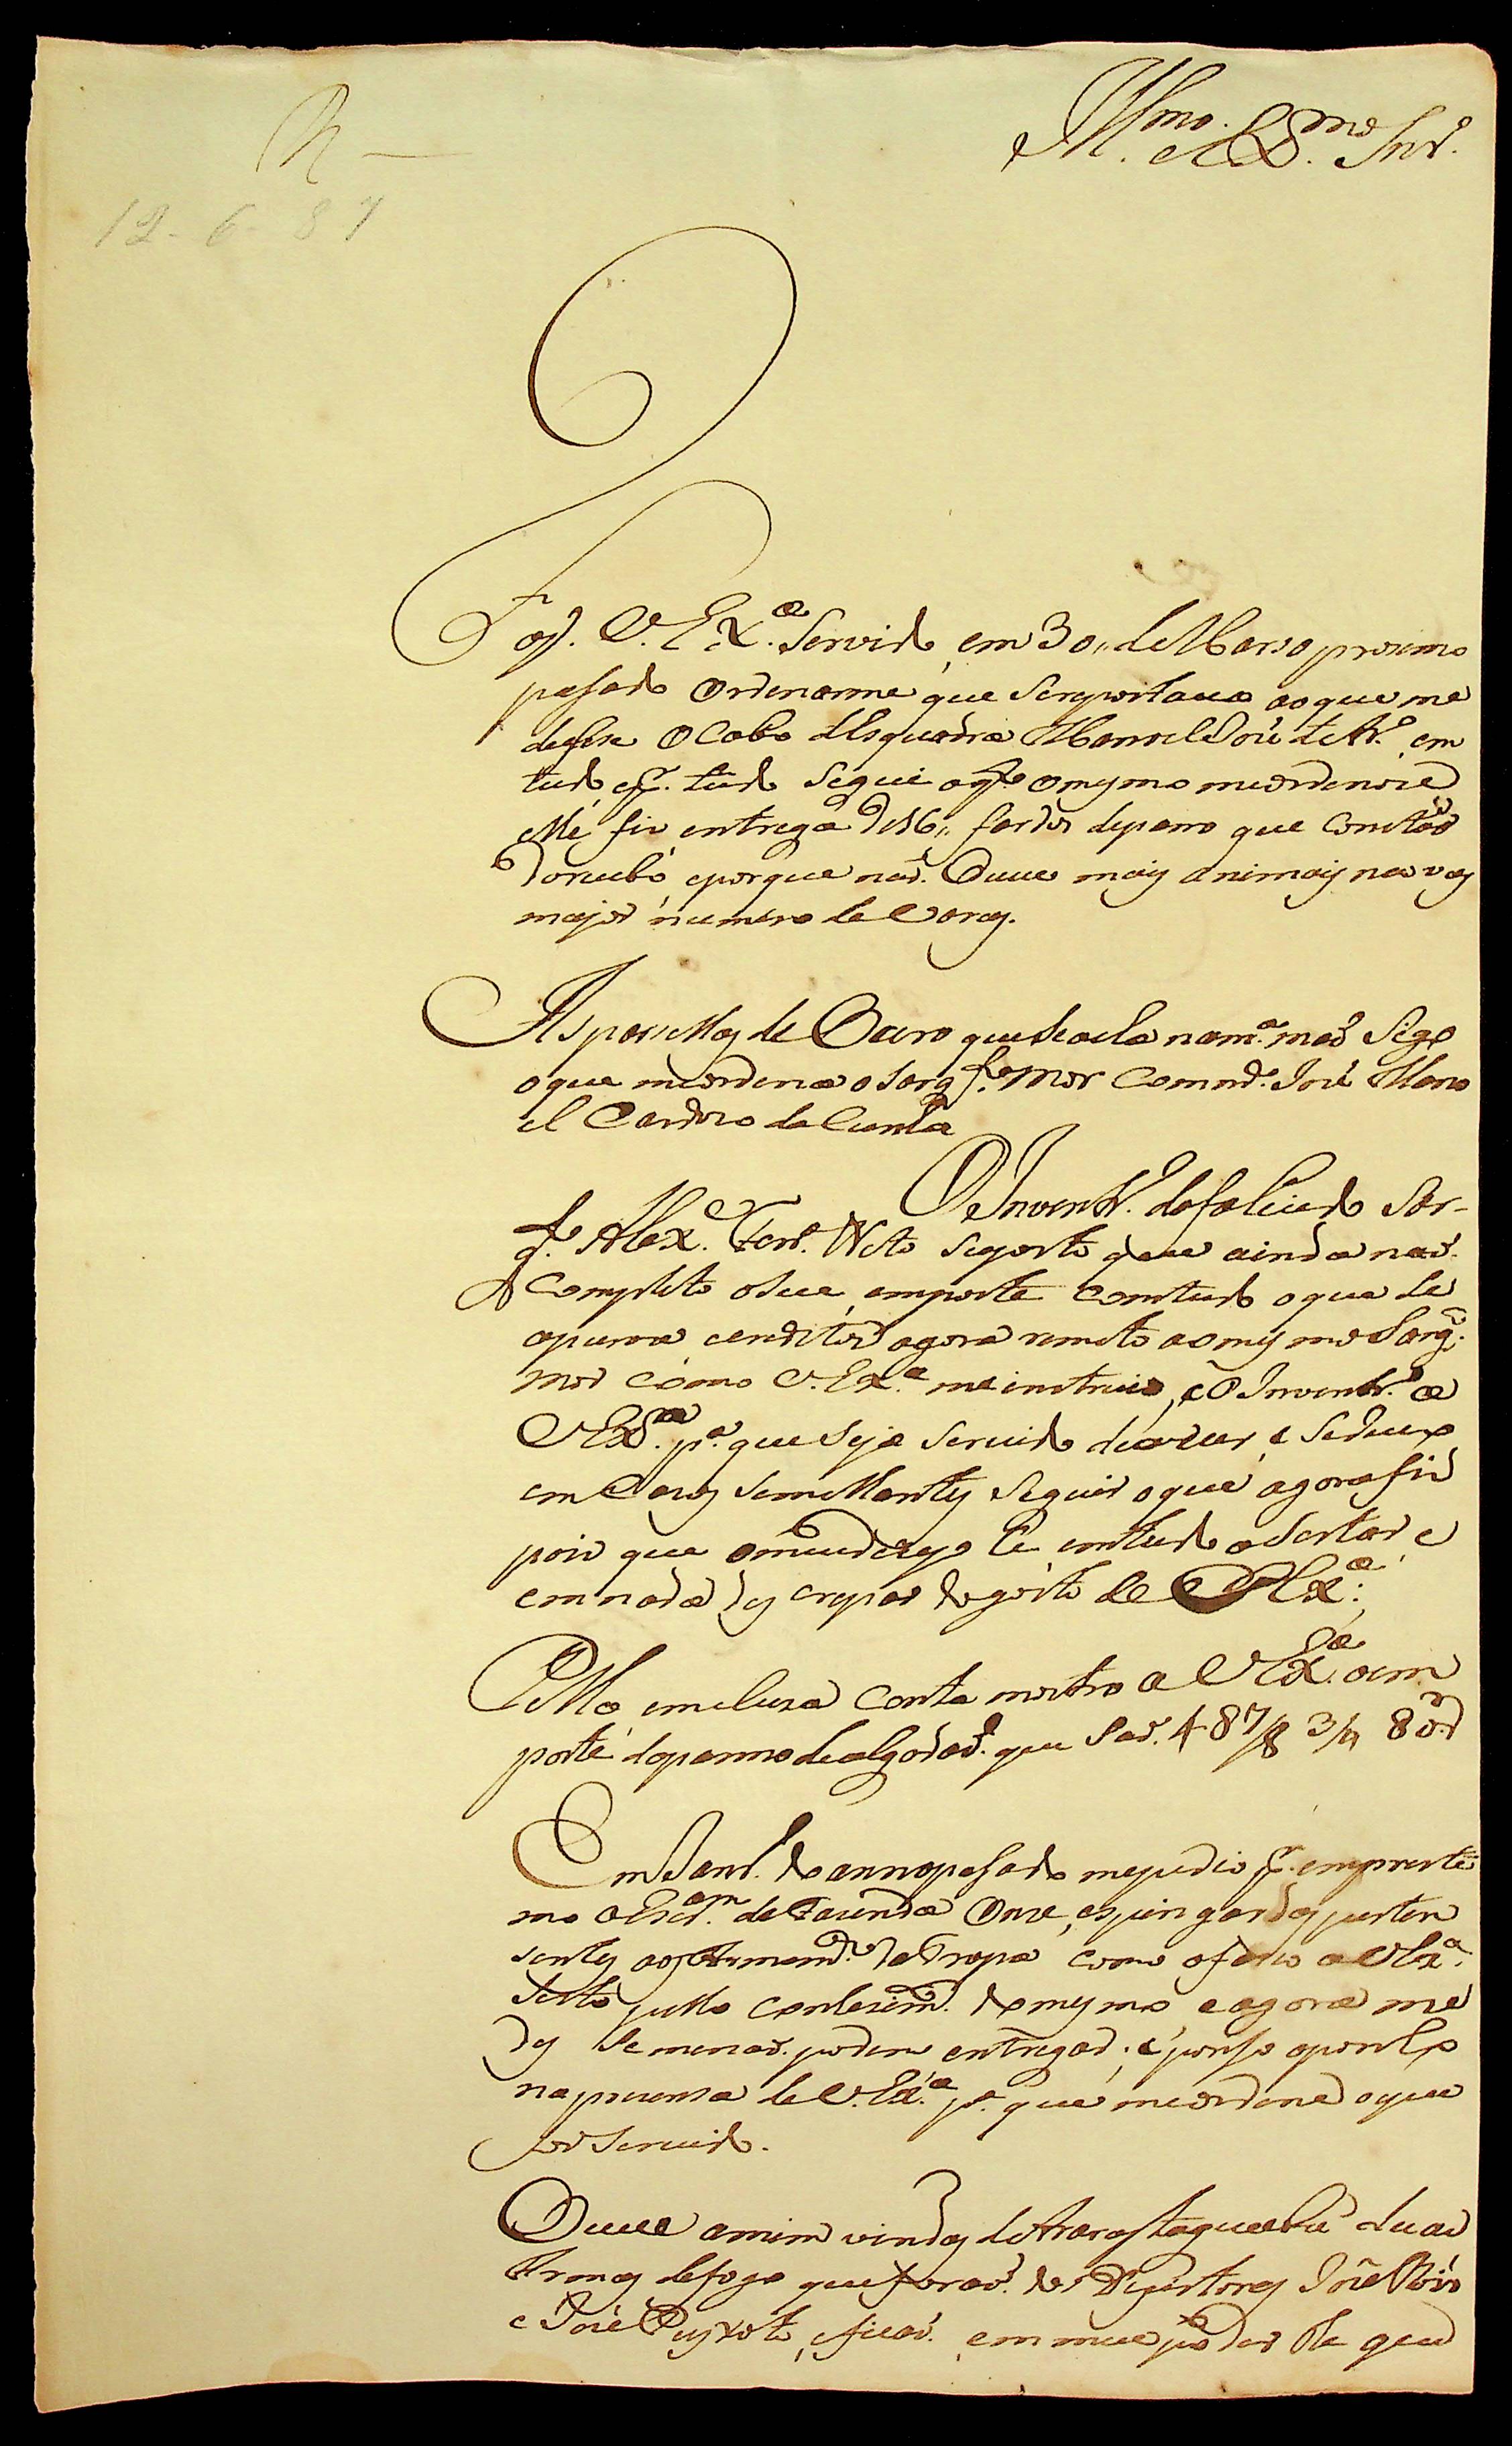 Illmo. e Exmo. Snr.
R
12 - 6 - 87
Foy V. Exª. Servido em 30,, de Marso proximo
pasado Ordenarme que Sereportaua ao que me
disese O Cabo dEsquadra Manoel José de Arº. em
tudo e pr. tudo Segui o qe. o mesmo meordenou e
lhe fis entrega de 16,, fardos depano que Consta do
Porcubó eporque naõ. Ouue mais animais naõ vay
major numero de Varas.
As parsellas de Ouro que Se acha na mª. maõ Sigo
o que meordena o Sargto. Mor Commde. José Mano
el Cardozo da Cunha
O Inventrº. dofalicido Sar-
gto. Alexe. Ferrª. Neto Seposto que ainda naõ.
Completo o Seu emporte Comtudo o que Se
apurou creditos agora remeto ao mesmo Sargto.
mor como V. Exª. me instruio, e O Inventrº. a
V Exª. pª. que Seja Seruido
em Cazos Semelhantes Seguir o que agora fis
pois que omeudezejo he emtudo aSertar e
em nada des crepar do gosto de V. Exª.
Pella incluza Conta mostro a V Exª. oem
porte dopanno de algodaõ. que Saõ. 487/8 3/4 8
Em Janrº. do annopasado mepedio pr. empreste
mo a Escam. da Fazenda Onze espingardas perten
sentes ao Armamto. da Tropa como ofasso a V Exª.
Serto pello Conhesimto. do mesmo e agora me
dis Se me naõ. podem entregar; e por iso oponho
na prezensa de V. Exª. pª. que me ordene o que
for Seruido.
Ouue amim vindas de Araraytaguaba duas
Armas de fogo que foraõ. dos Dezertores José
e José Peyxoto, e ficaõ. em meu poder the que